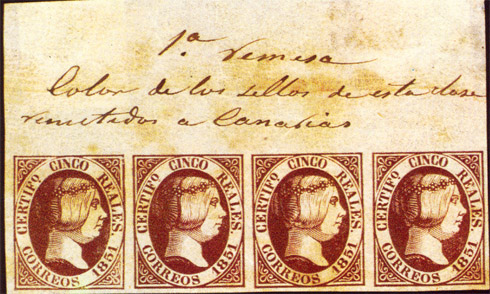 1.ª remesa
Color de los sellos de esta clase
remitidos a Canarias
CERTIFº CINCO REALES
CORREOS 1851
CERTIFº CINCO REALES
CORREOS 1851
CERTIFº CINCO REALES
CORREOS 1851
CERTIFº CINCO REALES
CORREOS 1851